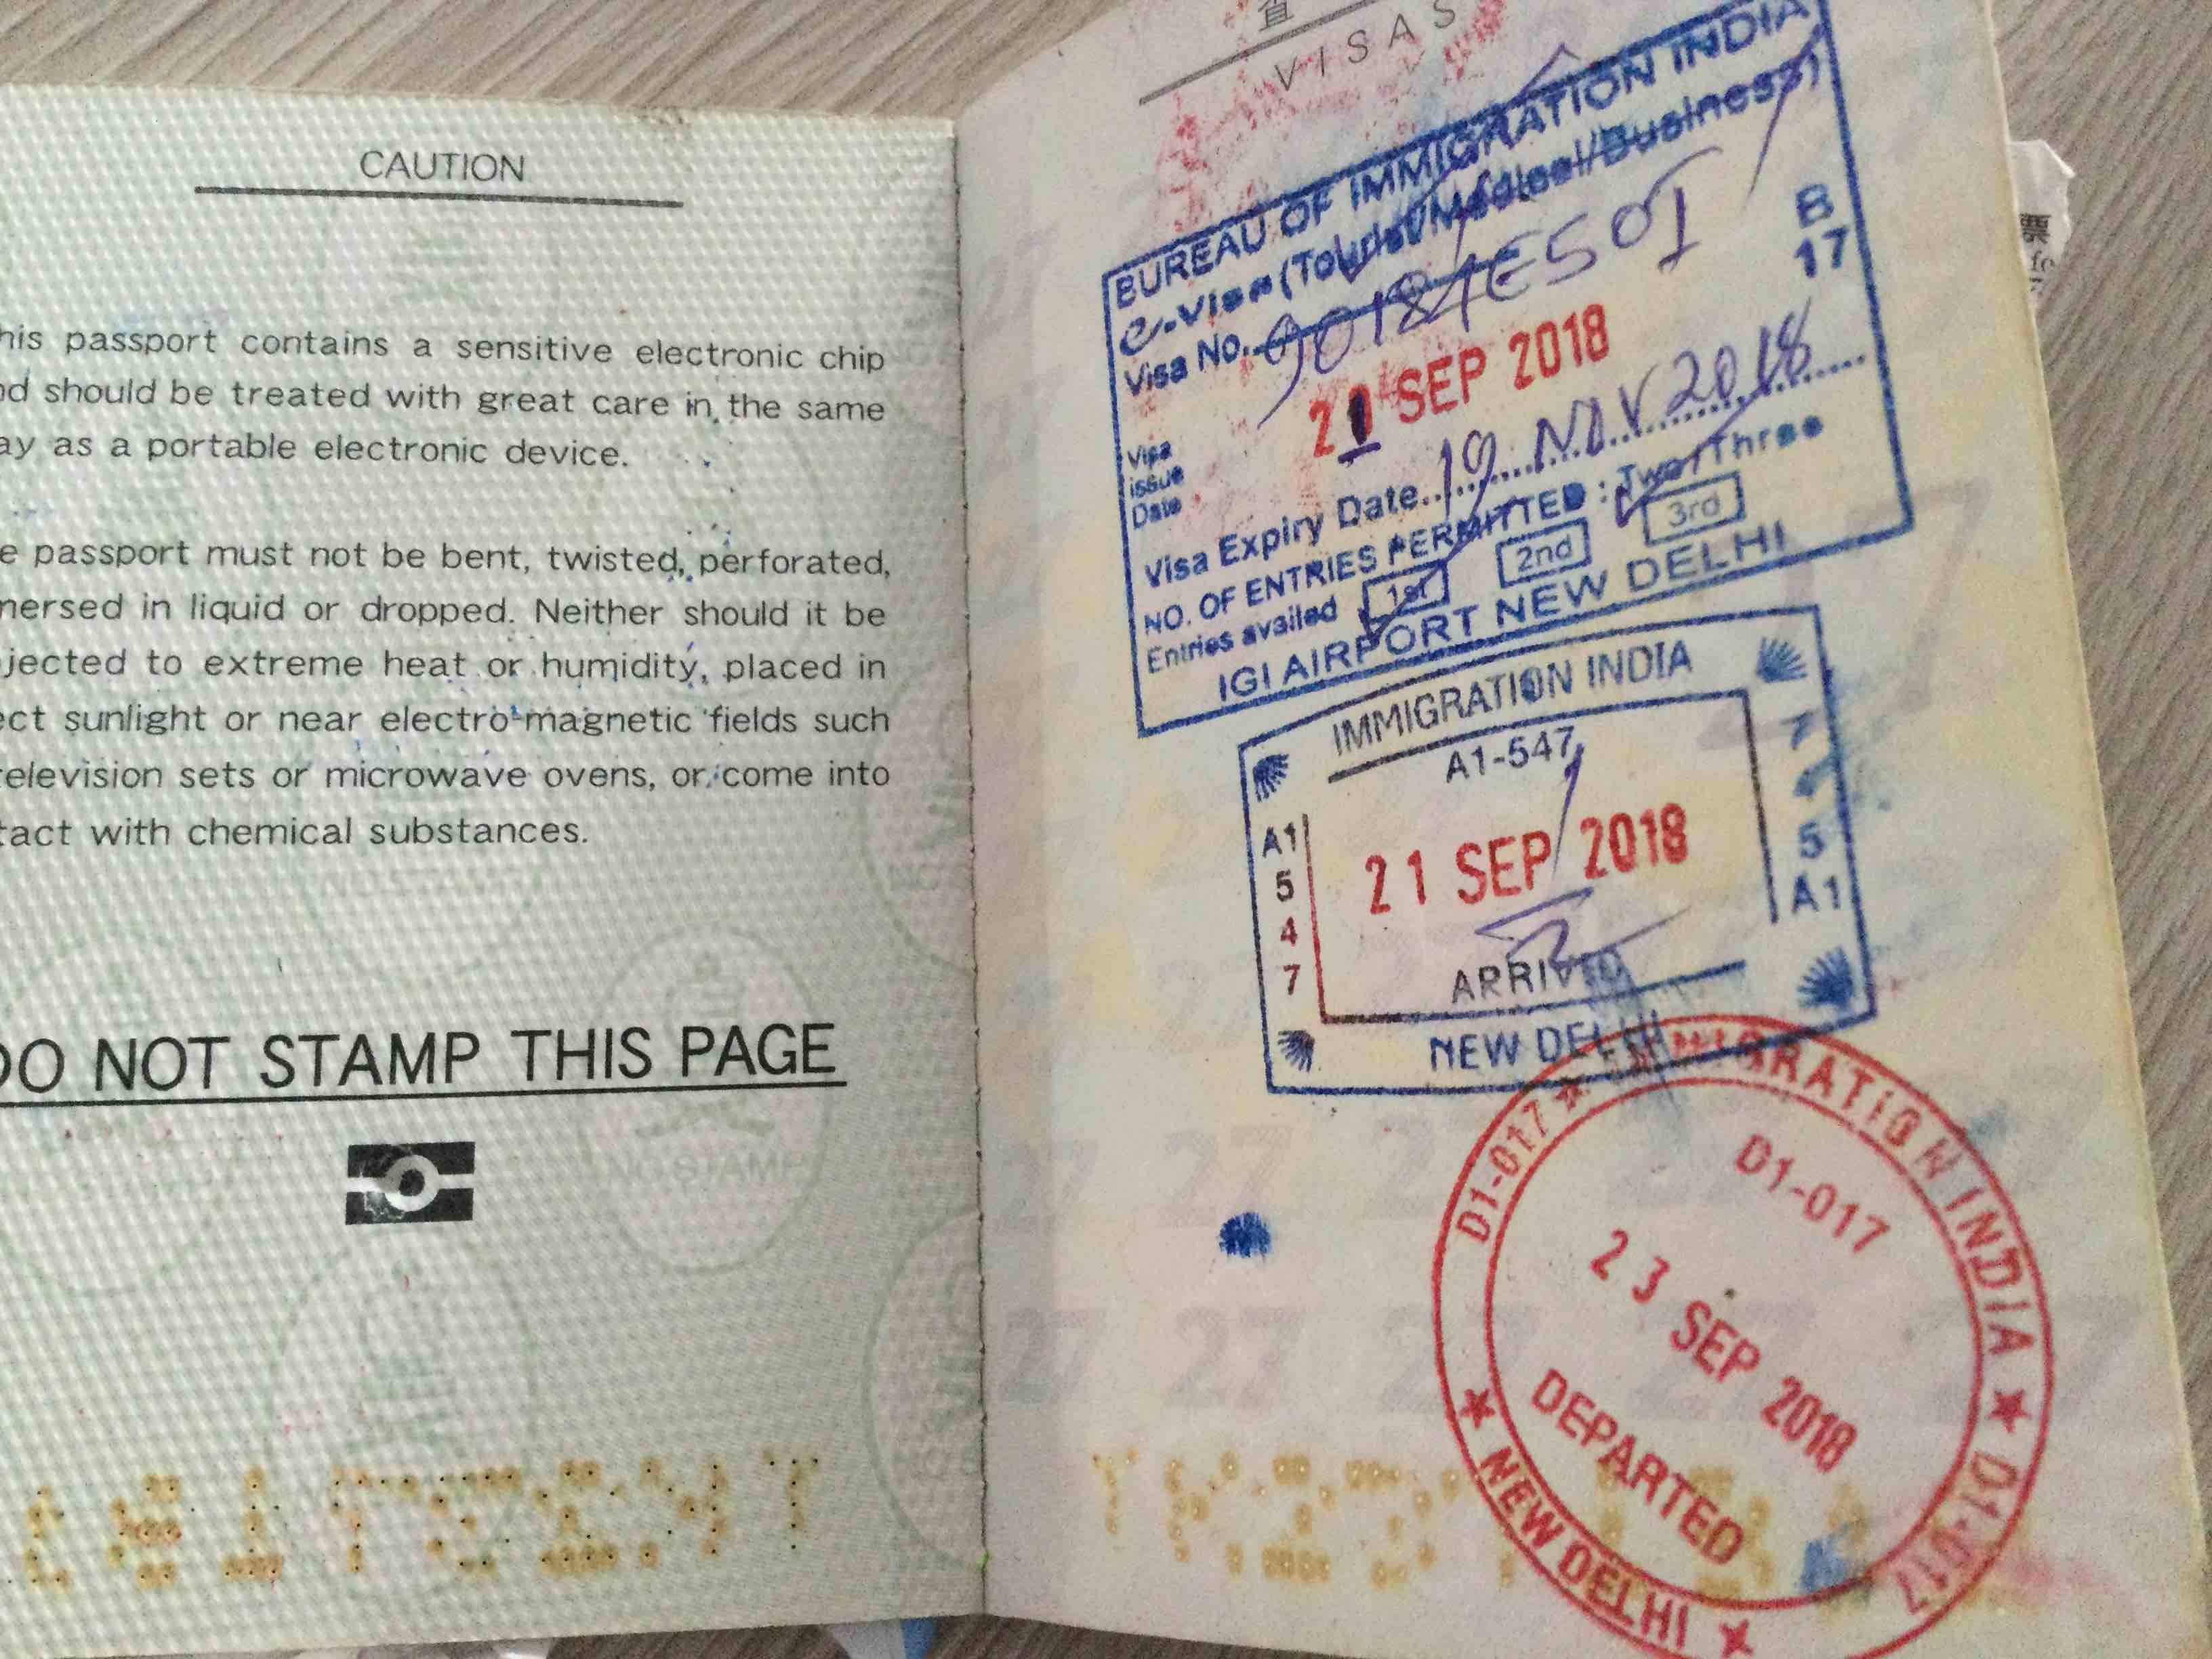 CAUTION
his passport contains a sensitive electronic chip
nd should be treated with great care in the same
ay as a portable electronic device.
e passport must not be bent, twisted, perforated,
mersed in liquid or dropped. Neither should it be
jected to extreme heat or humidity, placed in
ect sunlight or near electro-magnetic fields such
television sets or microwave ovens, or come into
tact with chemical substances.
DO NOT STAMP THIS PAGE
VISAS
BUREAU OF IMMIGRATION INDIA
e-Visa (Tourist/Medical/Business)
Visa No.
B
17
21 SEP 2018
Visa
Issue
Date
Visa Expiry Date 19 NOV 2018
NO. OF ENTRIES PERMITTED : Two/Three
Entries availed 1st 2nd 3rd
IGI AIRPORT NEW DELHI
IMMIGRATION INDIA
A1-547
A1
5
4
7
7
5
A1
21 SEP 2018
ARRIVED
NEW DELHI
IMMIGRATION INDIA
D1-017
D1-017
23 SEP 2018
DEPARTED
D1-017
NEW DELHI
27 27 27
27 27 27 27
票